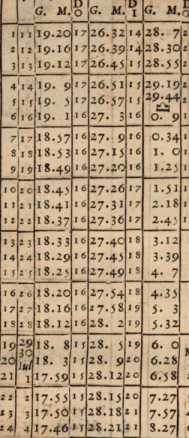 G. M. D O G. M. D I G. M.
1 11 19.20 17 26.32 14 28. 7
2 12 19.16 17 26.39 14 28.30
3 13 19.12 16 26.45 15 28.55
4 14 19. 9 16 26.51 15 29.19
5 15 19. 5 16 26.57 15 29.44
6 16 19. 1 16 27. 3 16 0. 9
7 17 18.57 16 27. 9 16 0.34
8 18 18.53 16 27.15 16 1. 0
9 19 18.49 16 27.20 16 1.25
10 20 18.45 16 27.26 17 1.51
11 21 18.41 16 27.31 17 2.18
12 22 18.37 16 27.36 17 2.45
13 23 18.33 16 27.40 18 3.12
14 24 18.29 15 27.45 18 3.39
15 25 18.25 15 27.49 18 4. 7
16 26 18.20 15 27.54 18 4.35
17 27 18.16 15 27.58 19 5. 3
18 28 18.12 15 28. 2 19 5.32
19 29 18. 8 15 28. 5 19 6. 0
20 30 18. 3 15 28. 9 20 6.28
Iul
21 1 17.59 15 28.12 20 6.58
22 2 17.55 15 28.15 20 7.27
23 3 17.50 15 28.18 21 7.57
24 4 17.46 15 28.21 21 8.27